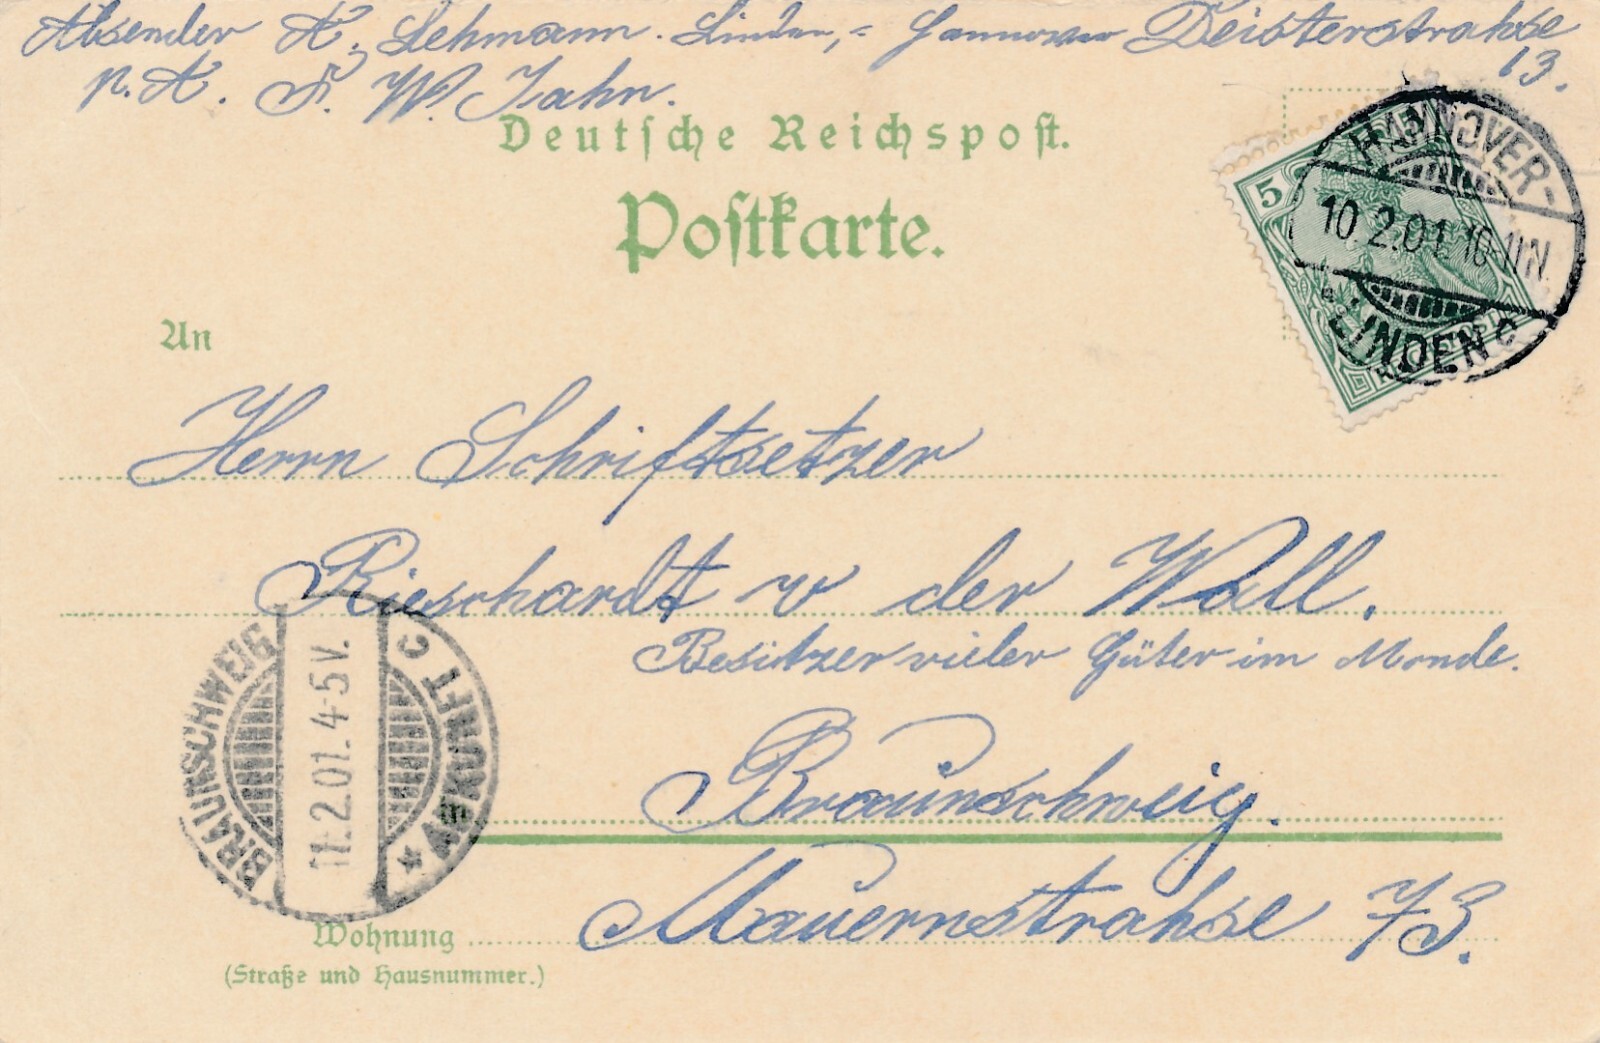 Absender A. Lehmann. Linden, = Hannover Deisterstrahse
13.
p. A. F. W. Jahn.
Deutsche Reichspost.
Postkarte.
5
HANNOVER-
10.2.01. 10-11N.
LINDEN C
An
Herrn Schriftsetzer
Rieschardt v der Wall.
Besitzer vieler Güter im Monde.
Braunschweig.
in
Mauernstrahse 73.
BRAUNSCHWEIG
11.2.01. 4-5 V.
* ANKUNFT C
Wohnung
(Straße und Hausnummer.)